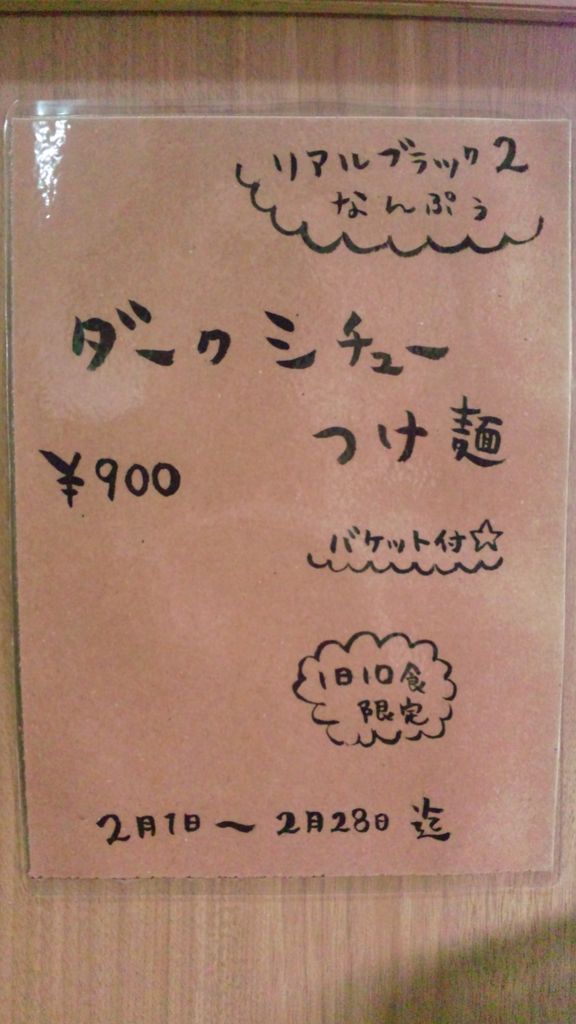 リアルブラック2
なんぷぅ
ダークシチュー
つけ麺
¥900
バケット付☆
1日10食
限定
2月1日〜2月28日迄